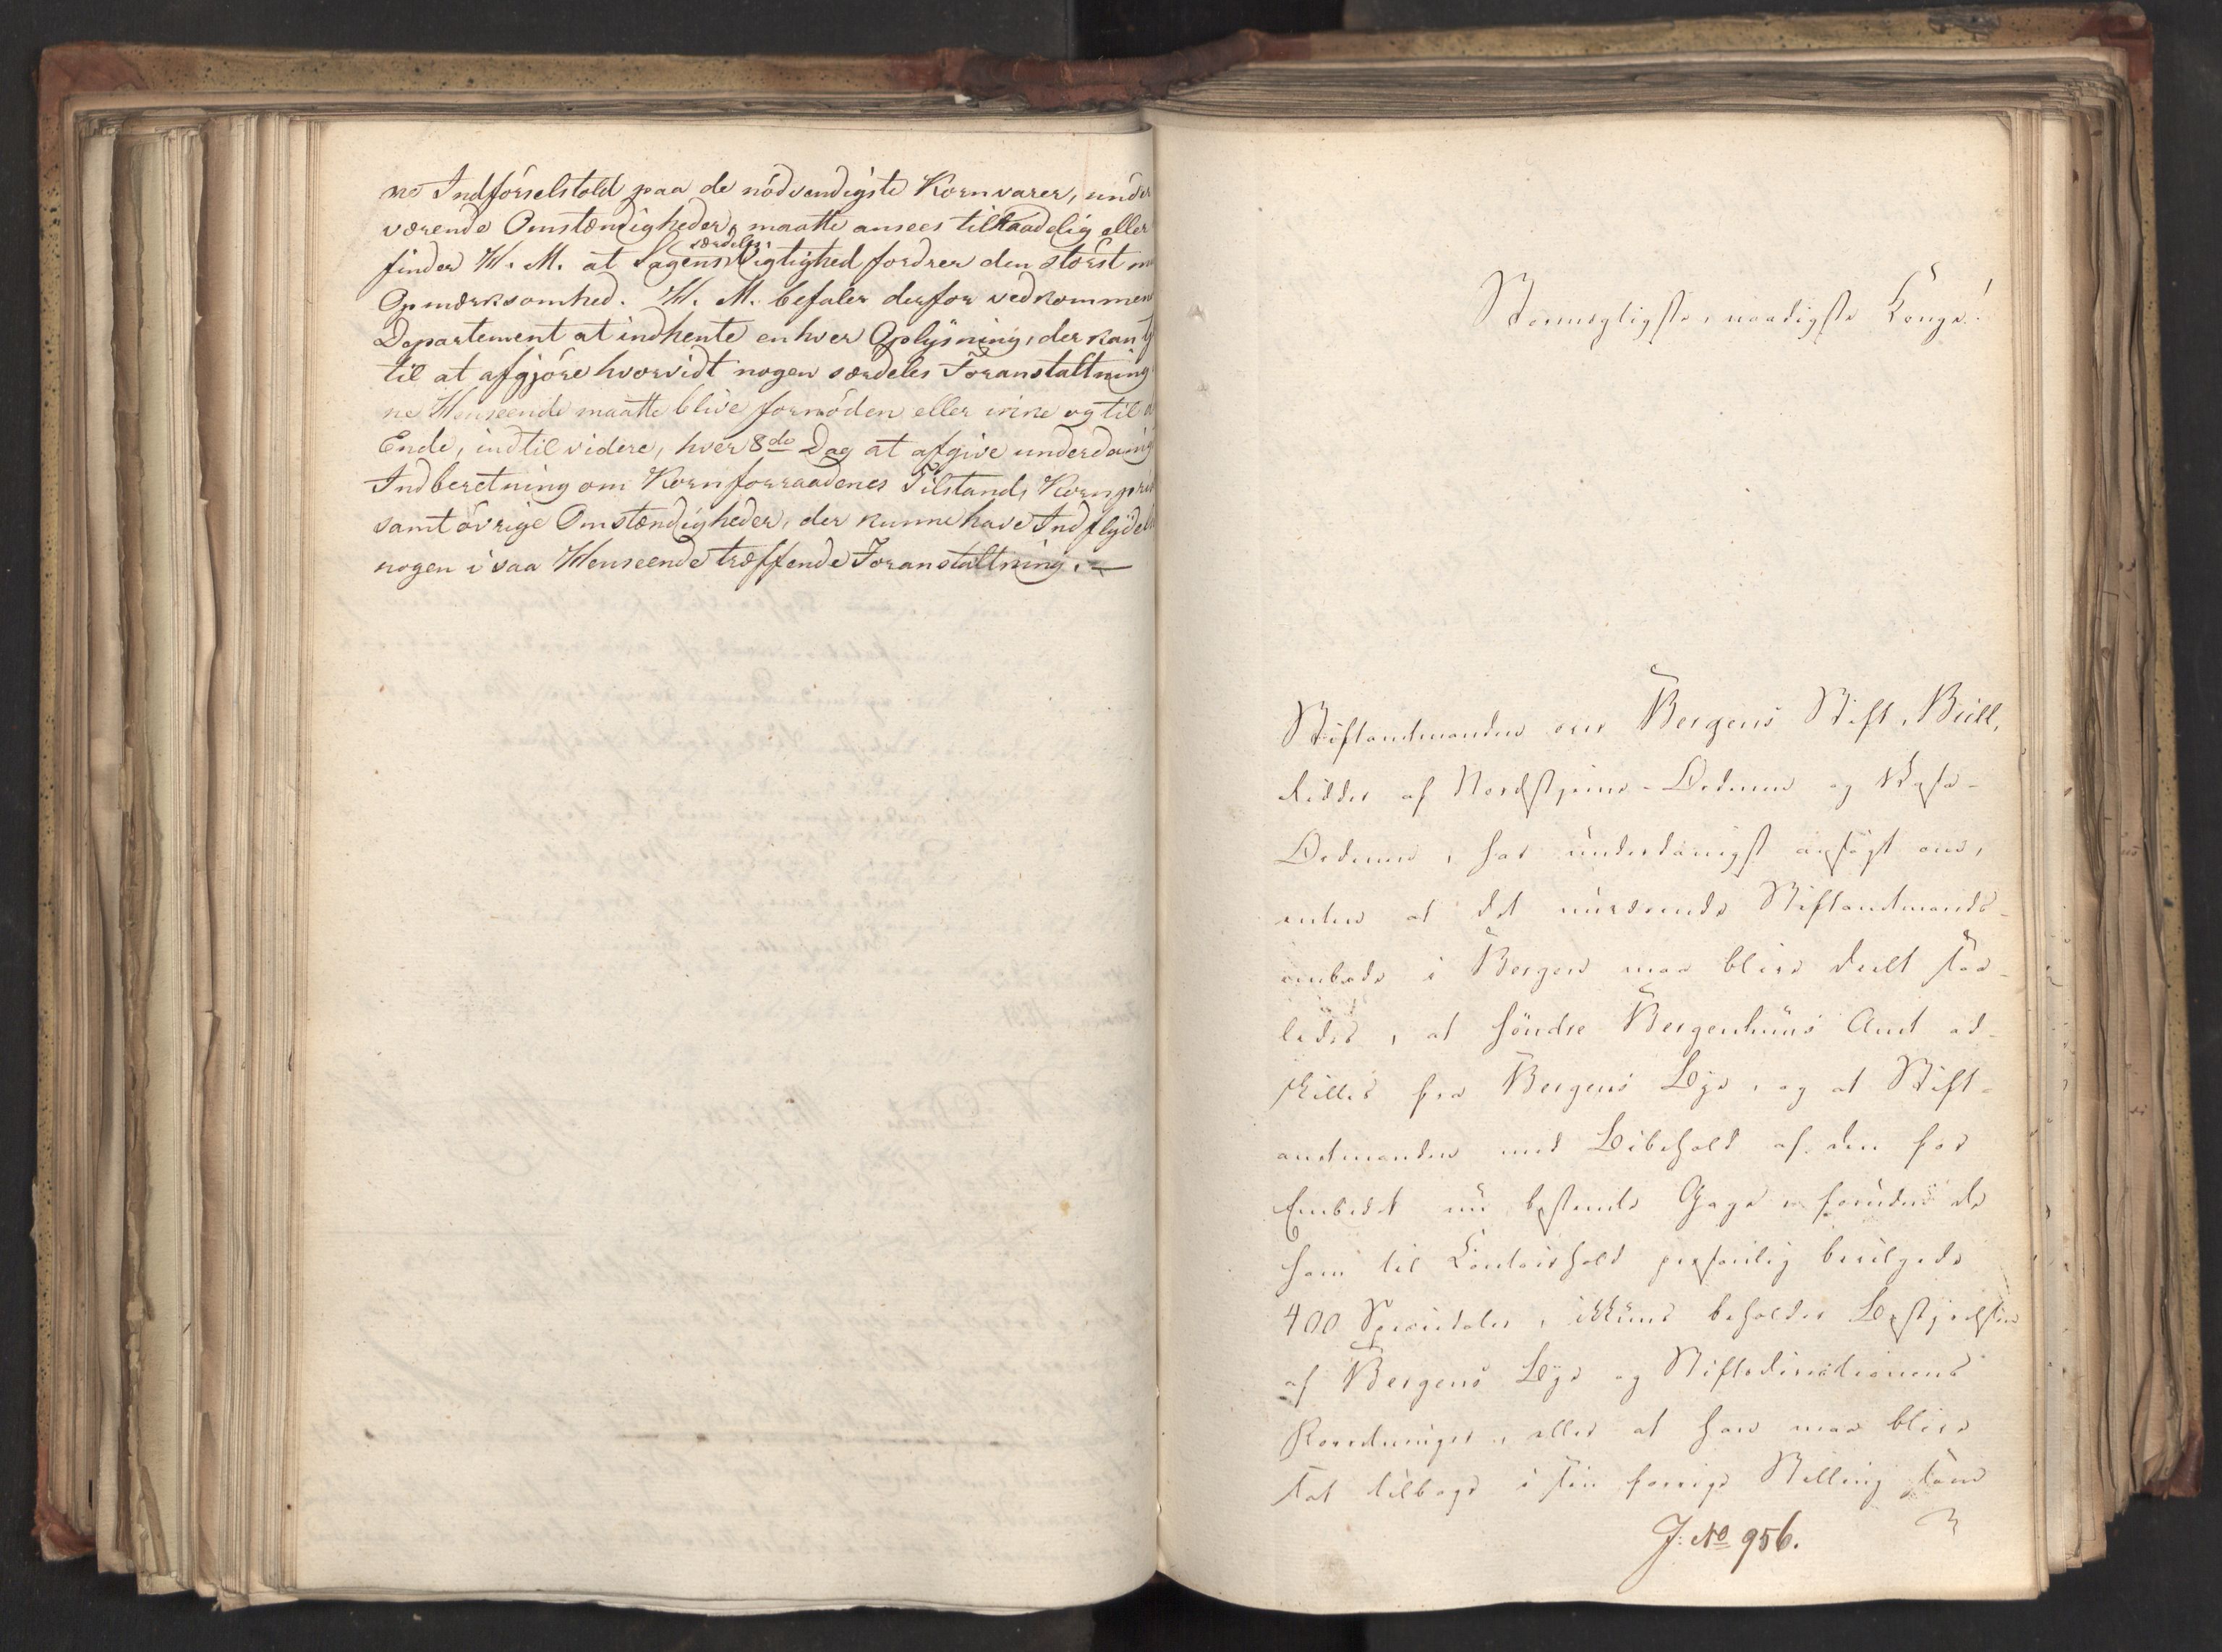 ne Indförselstold paa de nödvendigste Kornvarer, under
værende Omstændigheder, maatte ansees tilraadelig eller
finder H. M. at Sagens særdeles Vigtighed fordrer den störst mu
Opmærksomhed. H. M. befaler derfor vedkommen
Departement at indhente enhver Oplysning, der kan tj
til at afgjöre hvorvidt nogen særdeles Foranstaltning
ne Henseende maatte blive fornöden eller ikke og til d
Ende, indtil videre, hver 8de Dag at afgive underdanig
Indberetning om Kornforraadenes Tilstand, Kornpris
samt övrige Omstændigheder, der kunne have Indflydel
nogen i saa Henseende træffende Foranstaltning. —
Stormægtigste, naadigste Konge!
Stiftamtmanden over Bergens Stift, Büll,
Ridder af Nordstjerne-Ordenen og Vasa-
Ordenen, har underdanigst ansögt om,
enten at det nuværende Stiftamtmands-
embede i Bergen maa blive deelt saa-
ledes, at söndre Bergenhuus Amt ad-
skilles fra Bergens Bye, og at Stift-
amtmanden med Bibehold af den for
Embedet nu bestemte Gage, foruden de
ham til Contoirhold personlig bevilgede
400 Speciedaler, ikkuns beholder Bestyrelsen
af Bergens Bye og Stiftsdirectionens
Forretninger, eller at han maa blive
sat tilbage i sin forrige Stilling som
J: No 956.